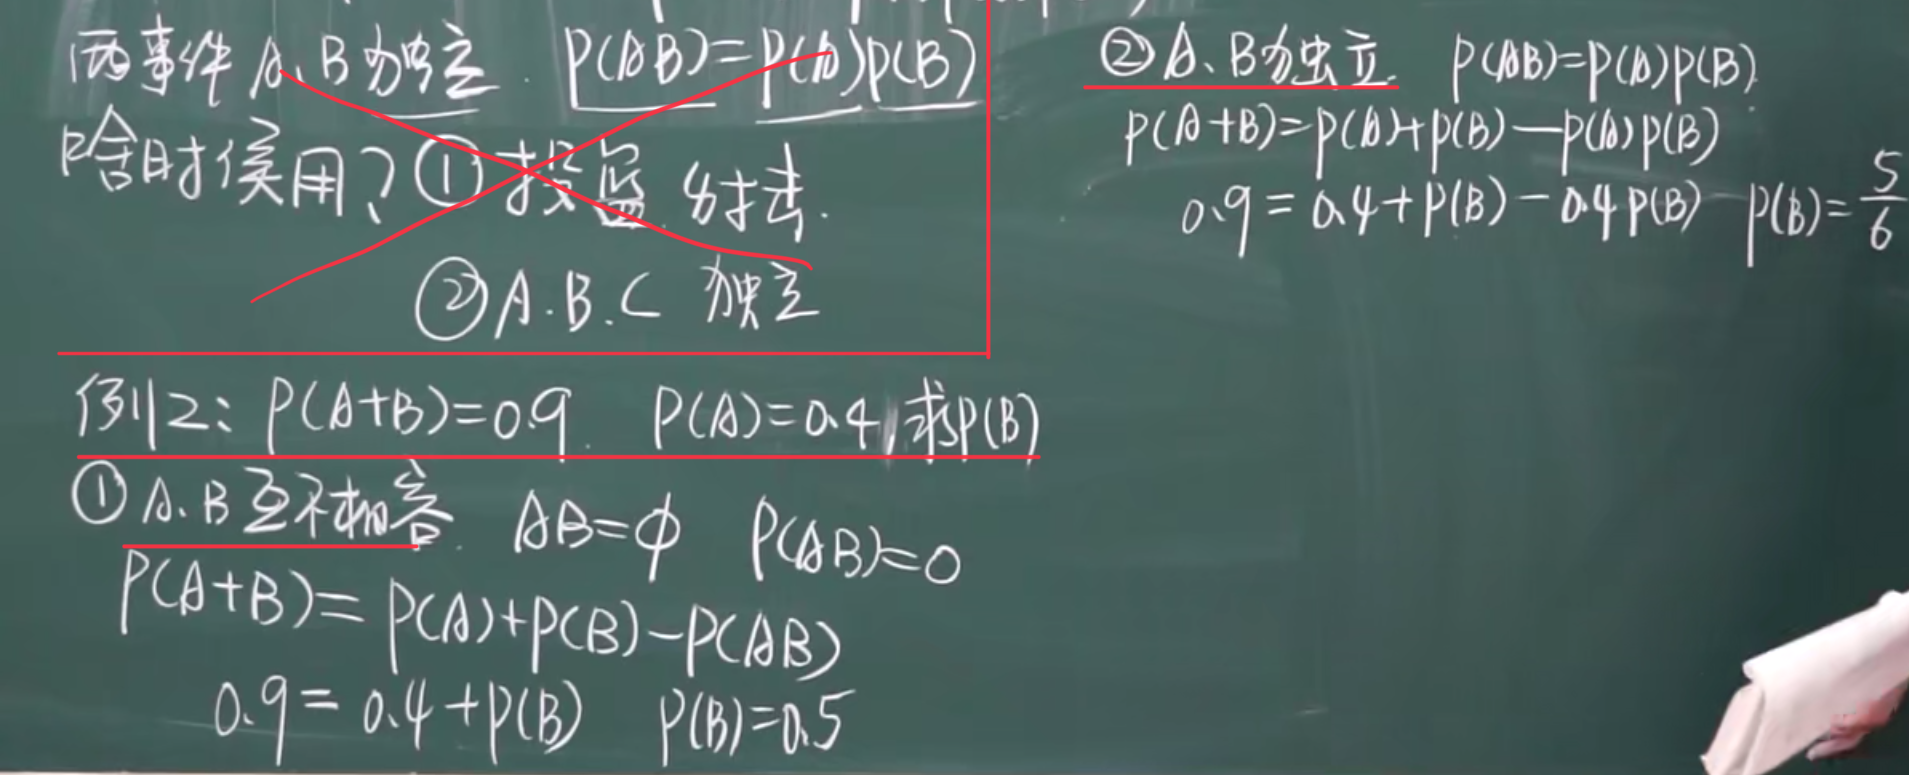 两事件A、B为独立. P(AB)=P(A)P(B)
啥时候用？① 投篮 射击.
② A.B.C 为独立
例2: P(A+B)=0.9. P(A)=0.4, 求P(B)
① A.B互不相容. AB=φ P(AB)=0
P(A+B)=P(A)+P(B)-P(AB)
0.9=0.4+P(B) P(B)=0.5
② A、B为独立. P(AB)=P(A)P(B).
P(A+B)=P(A)+P(B)-P(A)P(B)
0.9=0.4+P(B)-0.4P(B) P(B)=5/6